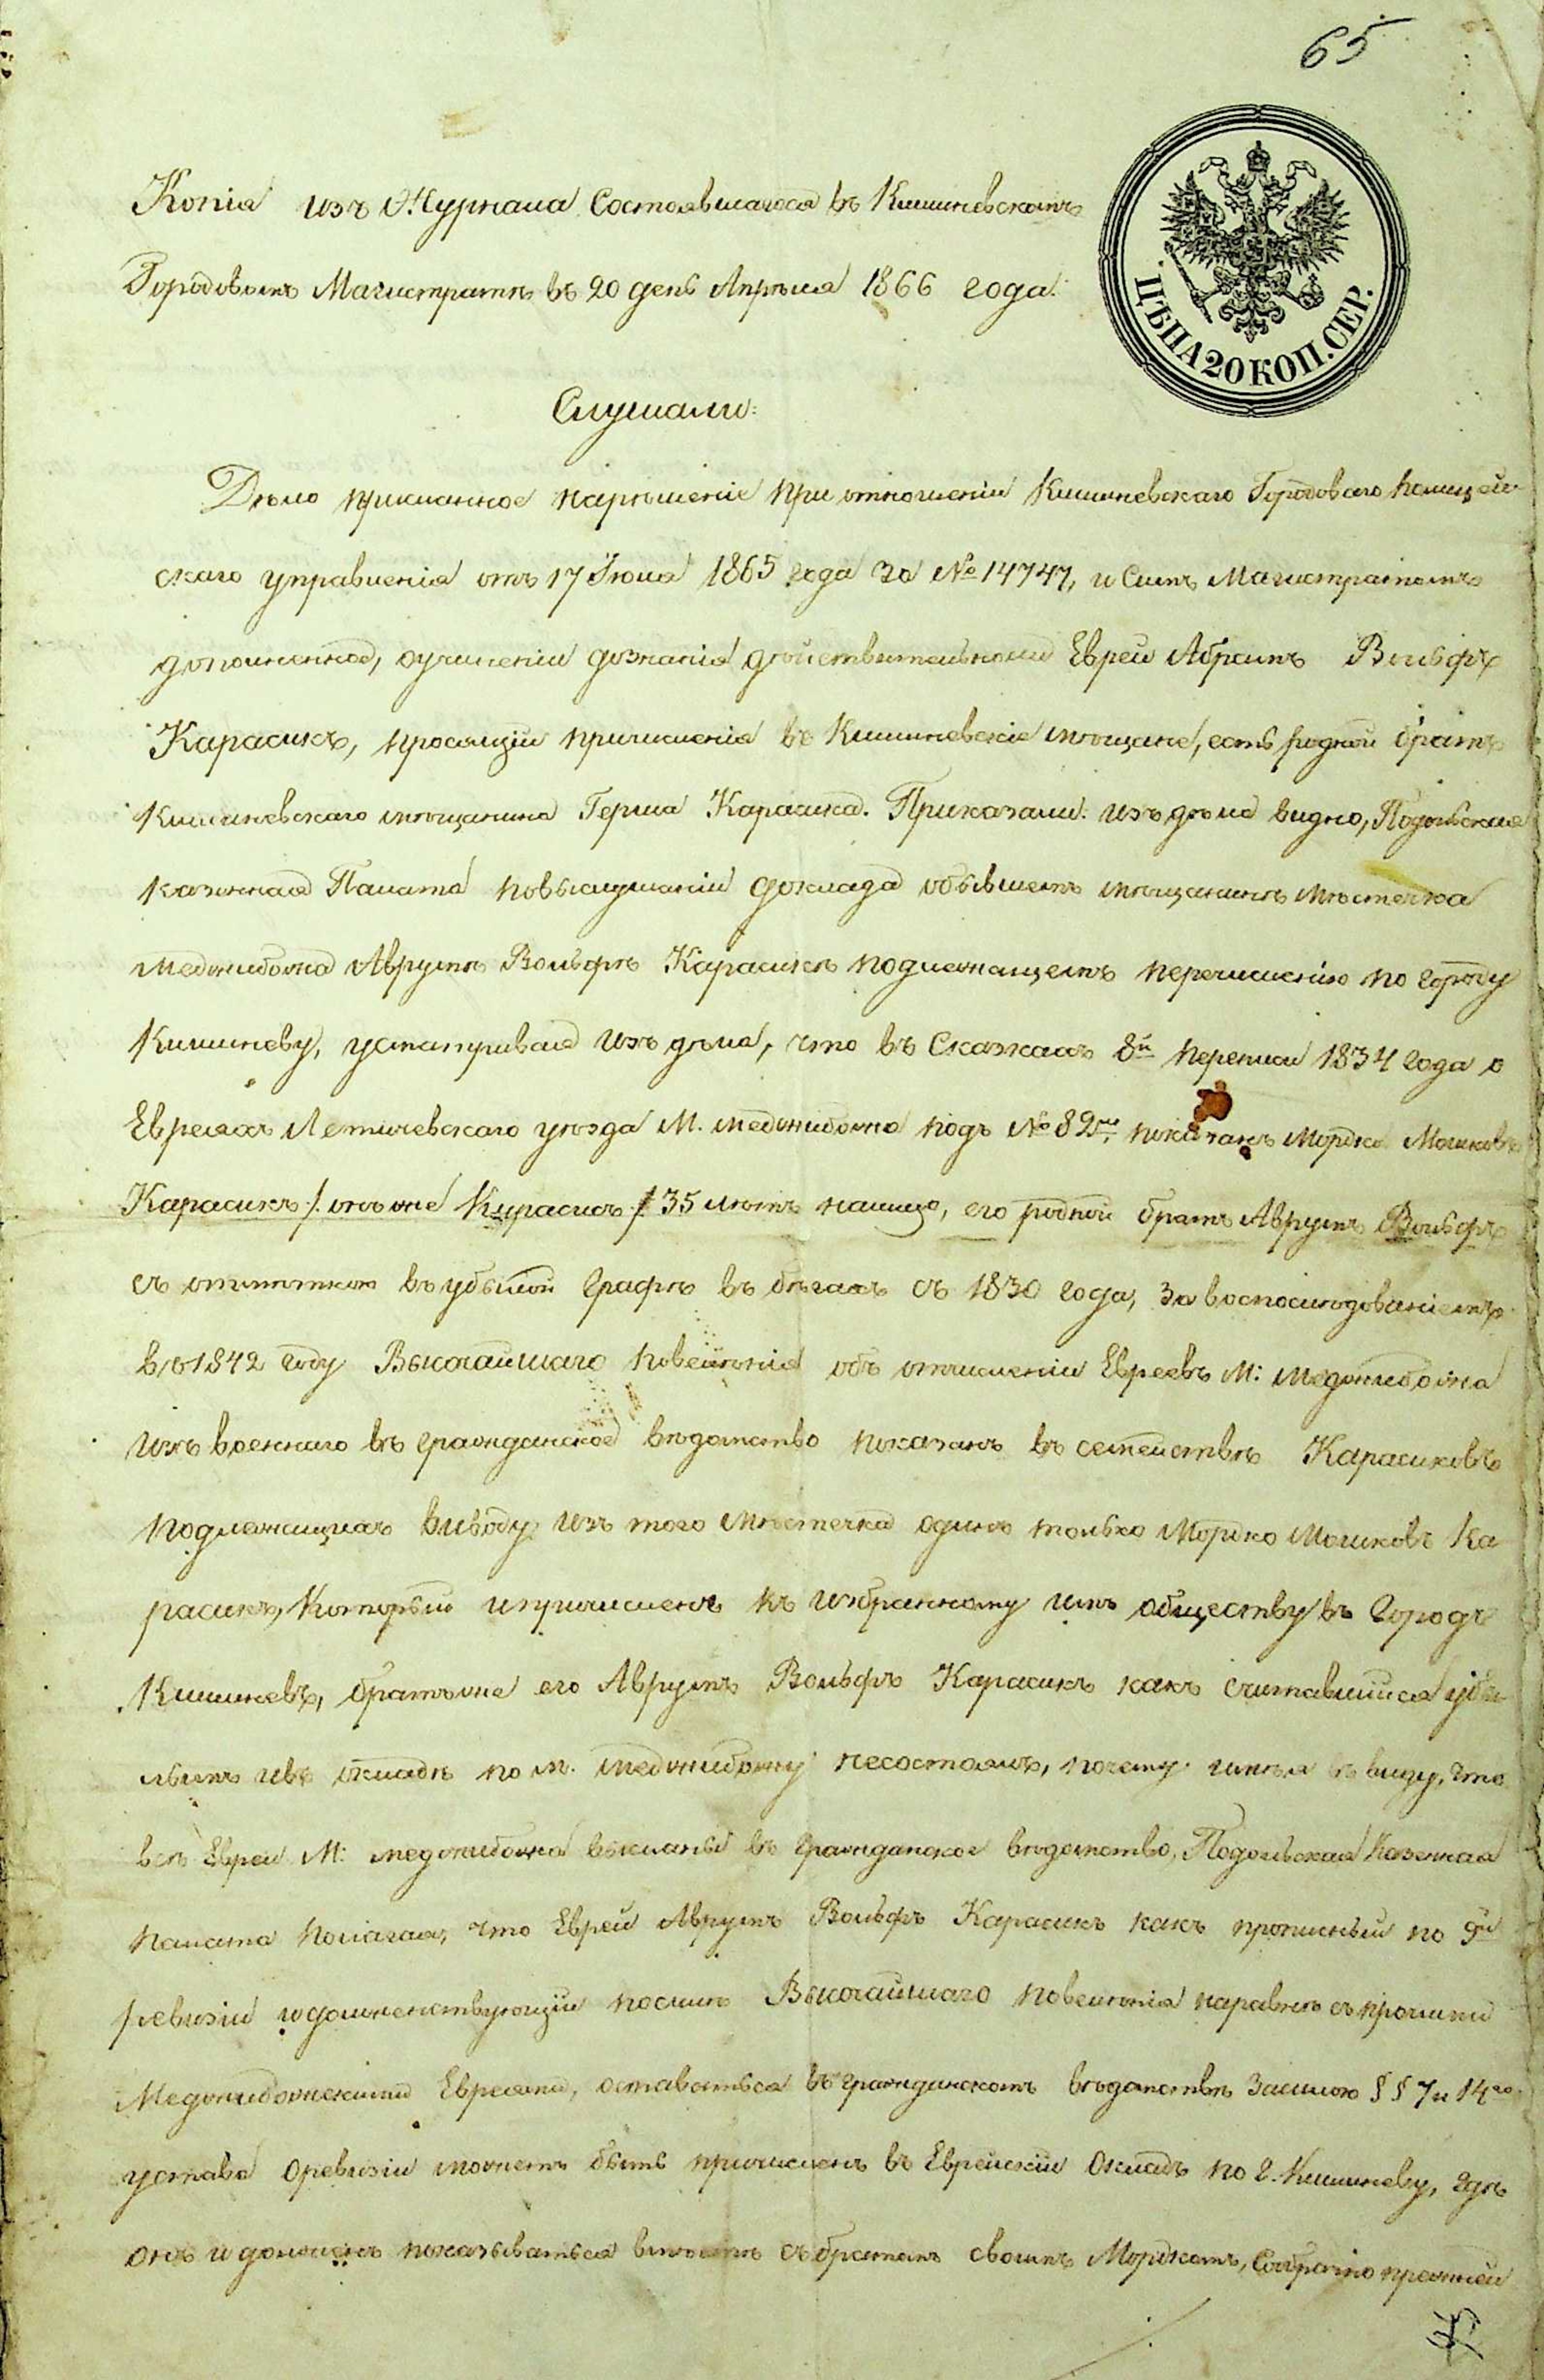 65
Копія изъ Журнала Состоявшагося въ Кишиневскомъ
Городовомъ Магистратѣ въ 20 день Апрѣля 1866 года.
ЦѢНА 20 КОП. СЕР.
Слушали:
Дѣло присланное нарѣшеніе при отношеніи Кишиневскаго Городоваго Полицей-
скаго управленія отъ 17 Іюля 1865 года за № 14747, и Симъ Магистратомъ
дополненное, оучиненіи дознанія дѣйствительноли Еврей Абрамъ Вольфъ
Карасикъ, просящій причисленія въ Кишиневскіе мѣщане, есть родной братъ
Кишиневскаго мѣщанина Герша Карасика. Приказали: изъ дѣла видно, Подольская
казенная Палата повыслушаніи доклада обывшемъ мѣщанинѣ Мѣстечка
Меджибожа Аврумѣ Вольфѣ Карасикѣ подлежащемъ перечисленію по городу
Кишиневу, усматривая изъ дѣла, что въ Сказкахъ 8й переписи 1834 года о
Евреяхъ Летичевскаго уѣзда М. Меджибожа подъ № 82мъ показанъ Мордко Мошковъ
Карасикъ /: онъ же Кирасикъ :/ 35 лѣтъ налицо, его родной братъ Аврумъ Вольфъ
съ отмѣткою въ убылой графѣ въ бѣгахъ съ 1830 года, За воспослѣдованіемъ
въ 1842 году Высочайшаго повелѣнія объ отчисленіи Евреевъ М: Меджибожа
изъ военнаго въ гражданское вѣдомство показанъ въ семействѣ Карасиковъ
подлежащихъ выводу изъ того мѣстечка одинъ только Мордко Мошковъ Ка
расикъ, Который ипричисленъ къ избранному имъ обществу въ Городѣ
Кишиневѣ, братъ же его Аврумъ Вольфъ Карасикъ какъ считавшійся убы-
лымъ ивъ окладѣ по м. Меджибожу несостоялъ, почему имѣя въ виду, что
всѣ Евреи М: Меджибожа высланы въ гражданское вѣдомство, Подольская Казенная
Палата полагая, что Еврей Аврумъ Вольфъ Карасикъ какъ прописный по 9й
ревизіи идолженствующій посилѣ Высочайшаго повелѣнія наравнѣ съ прочими
Меджибожскими Евреями, оставаться въ гражданскомъ вѣдомствѣ Засилою §§ 7 и 14го
устава оревизіи можетъ быть причисленъ въ Еврейскій Окладъ по г. Кишиневу, гдѣ
онъ и долженъ показываться вмѣстѣ съ братомъ своимъ Мордкомъ, прежней